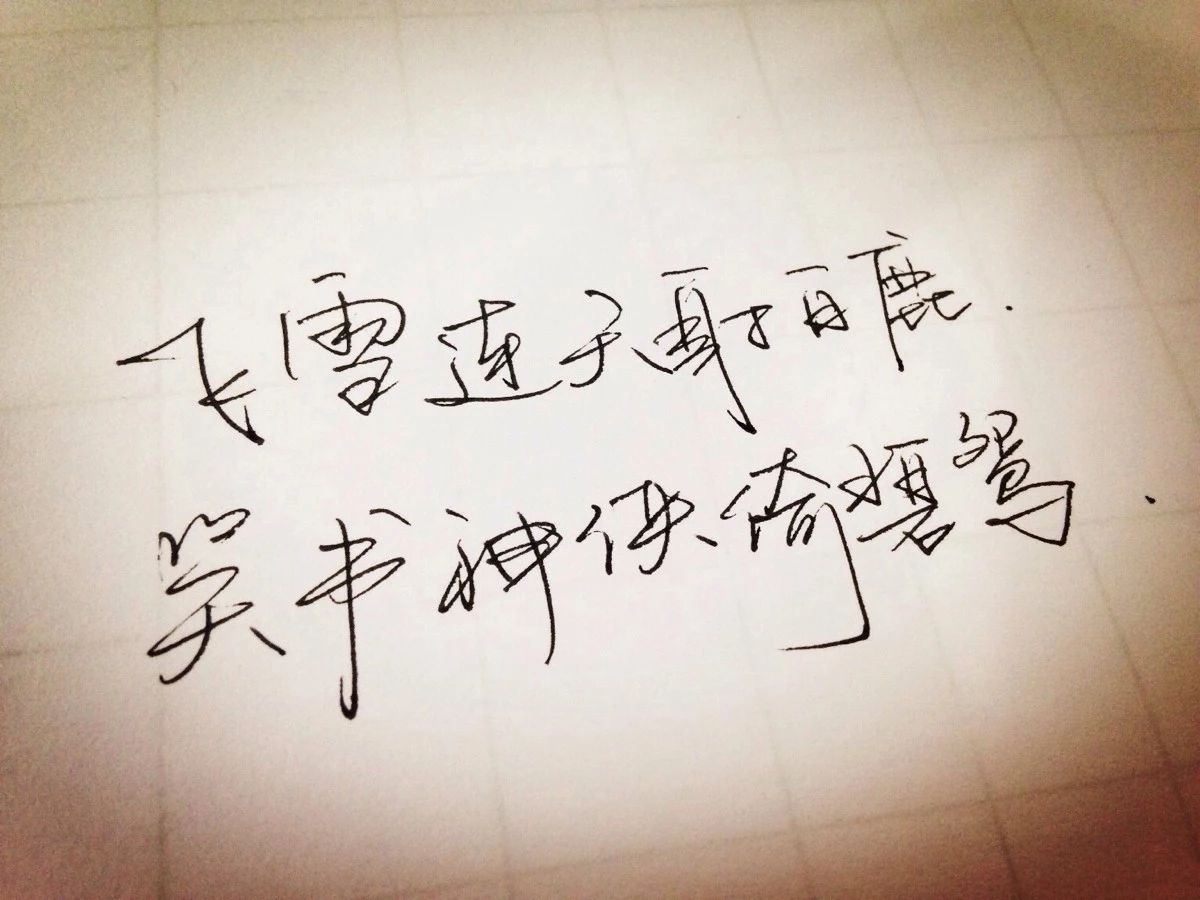 飞雪连天射白鹿.
笑书神侠倚碧鸳.